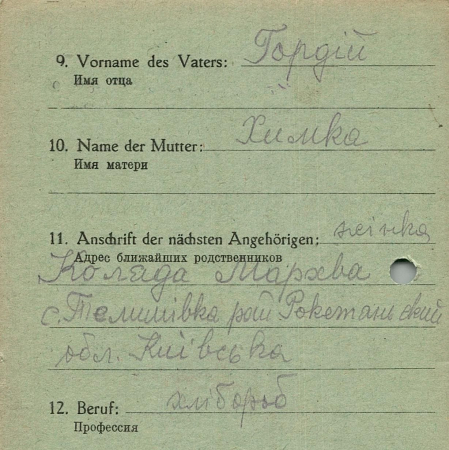 9. Vorname des Vaters: Гордій
Имя отца
10. Name der Mutter: Химка
Имя матери
11. Anschrift der nächsten Angehörigen: жінка
Адрес ближайших родственников
Коляда Мархва
с. Телишівка рай Рокетанський
обл. Київська
12. Beruf: хлібороб
Профессия